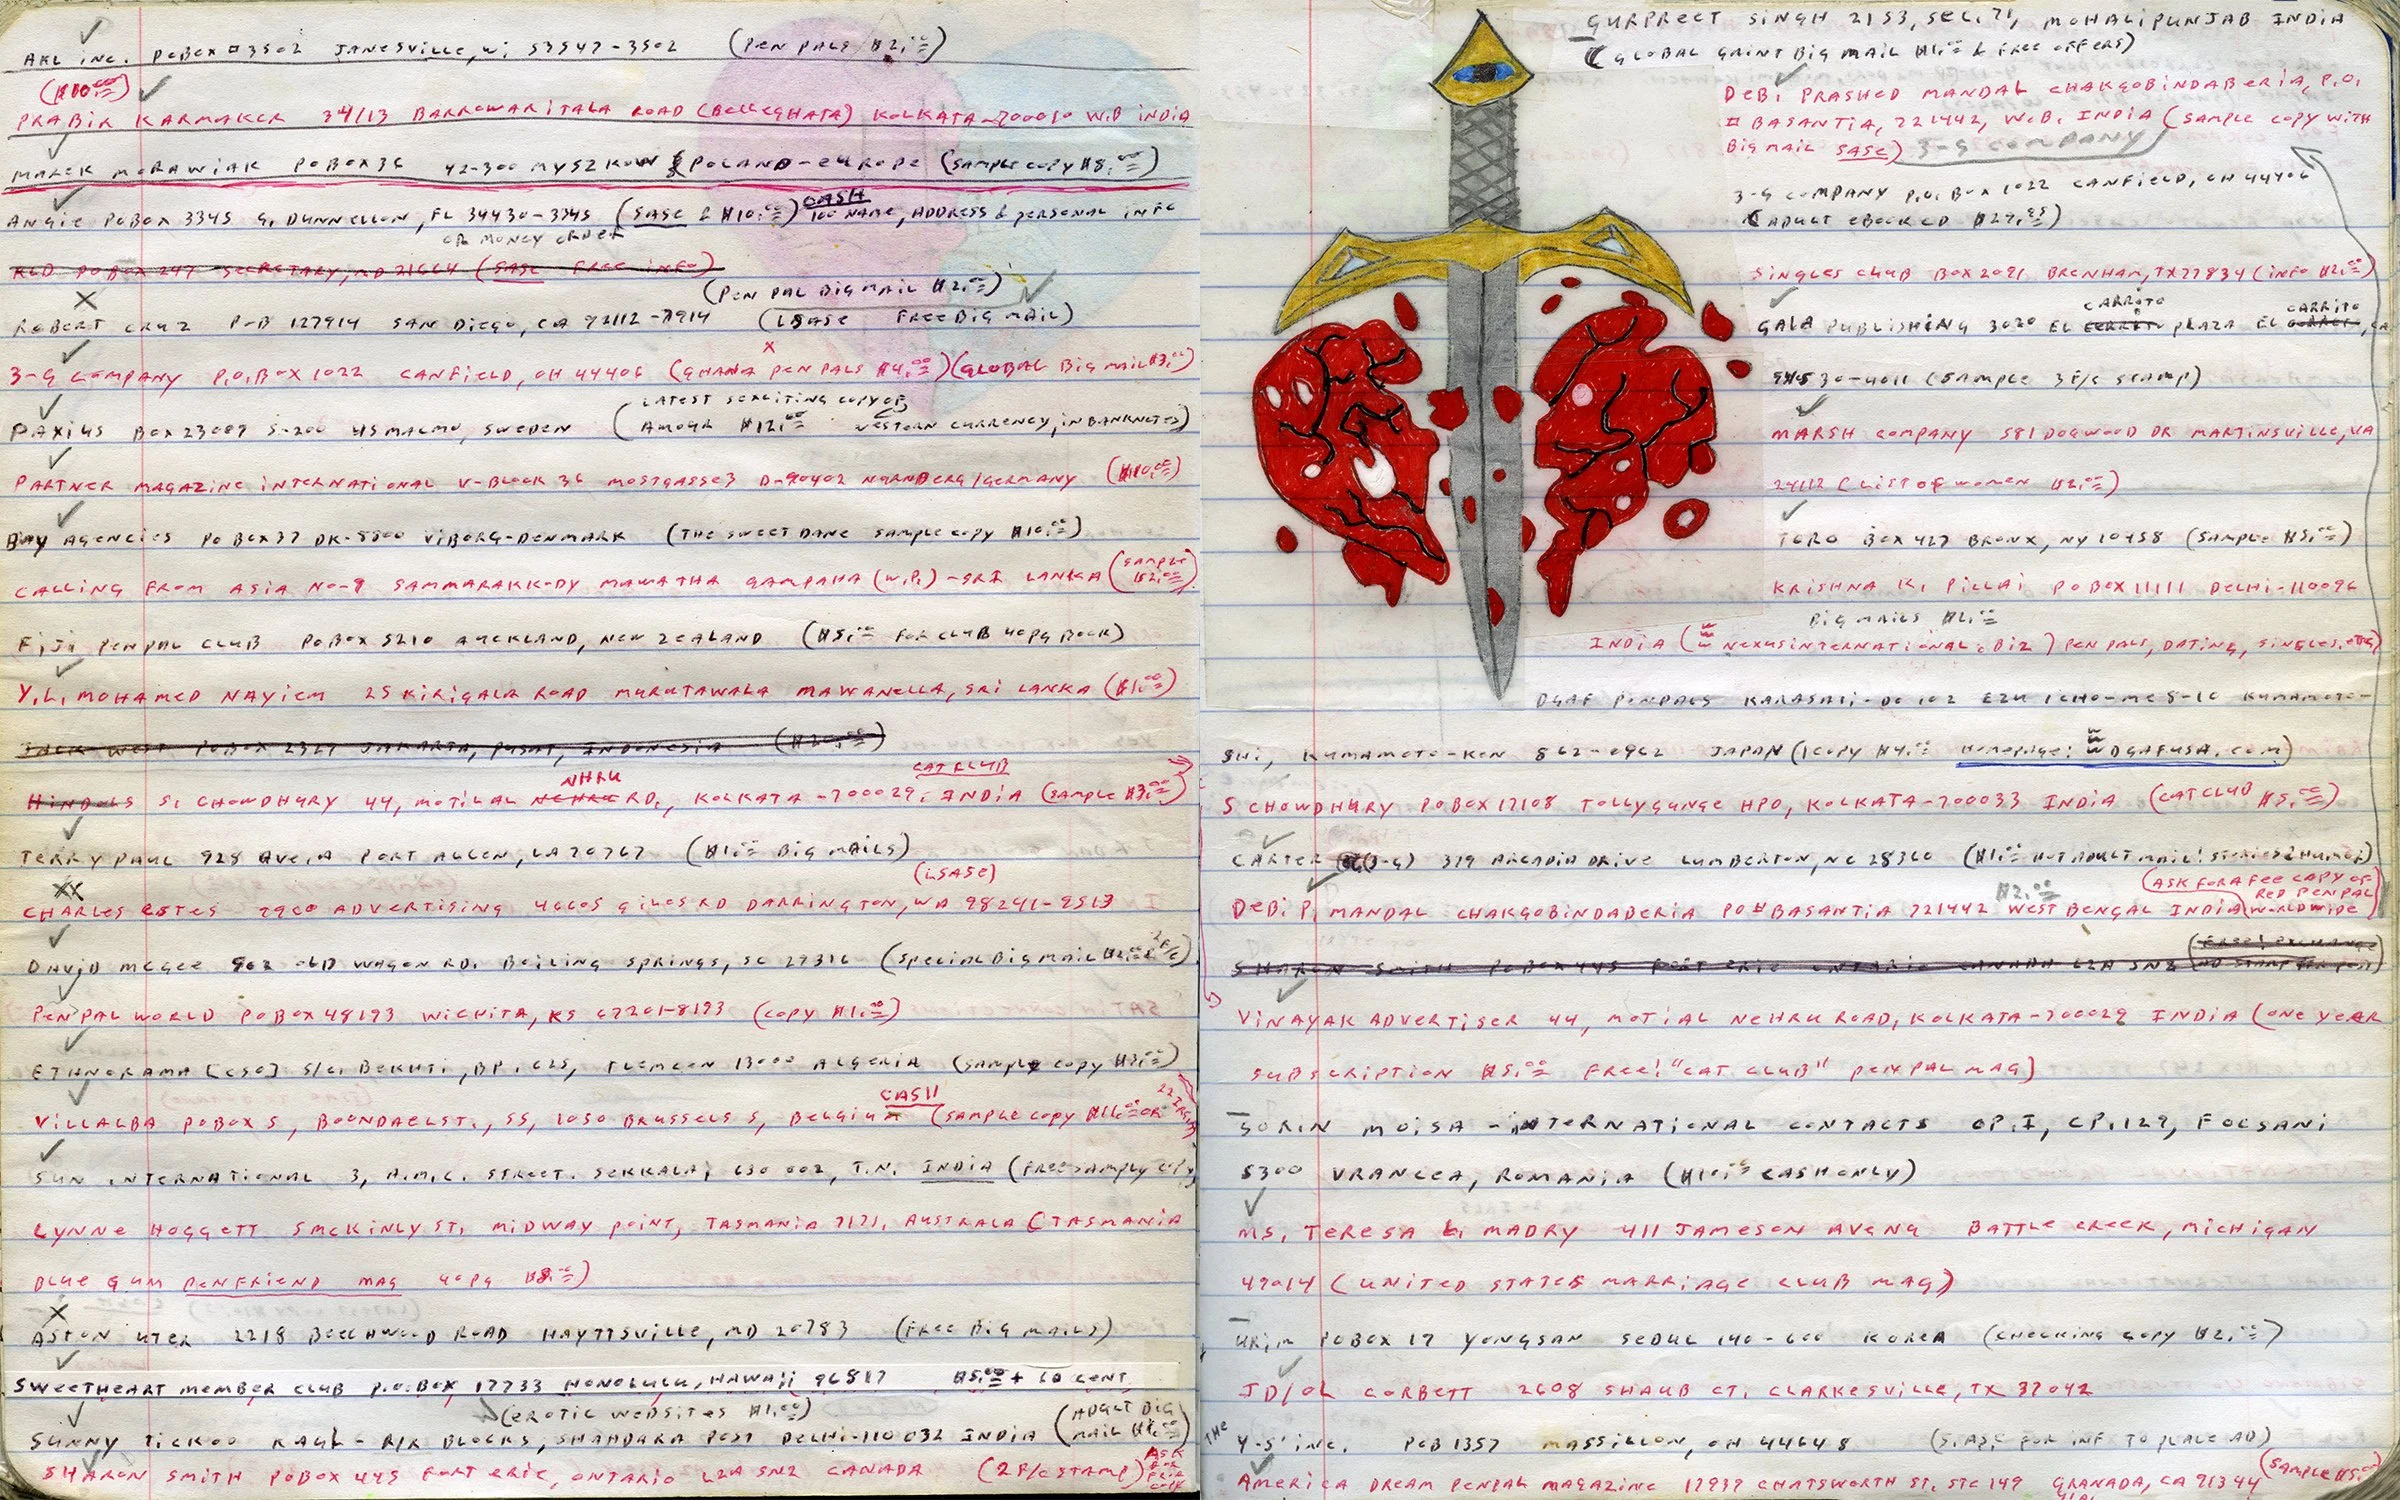 AKL inc. POBOX #3502 JANESVILLE, Wi 53547-3502 (PEN PALS $2.00)
($10.00)
PRABIR KARMAKER 34/13 BARROWARITALA ROAD (BELLEGHATA) KOLKATA-700010 W.B INDIA
MAREK MORAWIAK POBOX 36 42-300 MYSZKOW POLAND-EUROPE (SAMPLE COPY $8.00)
CASH
ANGIE POBOX 3345 DUNNELLON, FL 34430-3345 (SASE & $10.00) 100 NAME, ADDRESS & PERSONAL INFO
OR MONEY ORDER
RLD POBOX 247 SECRETARY, MD 21664 (SASE FREE INFO)
(PEN PAL BIG MAIL $2.00)
ROBERT CRUZ P-B 127914 SAN DIEGO, CA 92112-7914 (LSASE FREE BIG MAIL)
3-G COMPANY P.O. BOX 1022 CANFIELD, OH 44406 (GHANA PEN PALS $4.00) (GLOBAL BIG MAIL $3.00)
(LATEST SEXCITING COPY OF
PAXIUS BOX 23087 S-200 45 MALMO, SWEDEN AMOUR $12.00 WESTERN CURRENCY, IN BANKNOTES)
PARTNER MAGAZINE INTERNATIONAL V-BLOCK 36 MOSTGASSE 3 D-90402 NURNBERG/GERMANY ($10.00)
BAY AGENCIES POBOX 37 DK-8800 VIBORG-DENMARK (THE SWEET DANE SAMPLE COPY $10.00)
CALLING FROM ASIA NO-8 SAMMARAKKODY MAWATHA GAMPAHA (W.P.) -SRI LANKA (SAMPLE $2.00)
FIJI PEN PAL CLUB POBOX 5210 AUCKLAND, NEW ZEALAND ($5.00 FOR CLUB 40PG BOOK)
Y.L. MOHAMED NAYIEM 25 KIRIGALA ROAD MURUTAWALA MAWANELLA, SRI LANKA ($1.00)
JACK WEST POBOX 2327 JAKARTA, PUSAT, INDONESIA ($20.00)
NHRU CAT CLUB
HINDOLS S. CHOWDHURY 44, MOTILAL NEHRU RD., KOLKATA-700029, INDIA (SAMPLE $3.00)
TERRY PAUL 928 AVE. A PORT ALLEN, LA 70767 ($1.00 BIG MAILS)
(LSASE)
CHARLES ESTES 2900 ADVERTISING 46605 GILES RD DARRINGTON, WA 98241-9513
DAVID MCGEE 902 OLD WAGON RD. BOILING SPRINGS, SC 29316 (SPECIAL BIG MAIL $2.00 2 F/C)
PEN PAL WORLD POBOX 48193 WICHITA, KS 67201-8193 (COPY $1.00)
ETHNORAMA [CSO] S/C. BEKHTI, BP. 625, TLEMCEN 13000 ALGERIA (SAMPLE COPY $3.00)
CASH
VILLALBA POBOX 5, BOONDAELST., 55, 1050 BRUSSELS 5, BELGIUM (SAMPLE COPY $16.00 OR 22 IRCS)
SUN INTERNATIONAL 3, A.M.C. STREET. SEKKALAI 630 002, T.N. INDIA (FREE SAMPLY COPY
LYNNE HOGGETT 5 MCKINLY ST, MIDWAY POINT, TASMANIA 7171, AUSTRALA (TASMANIA
BLUE GUM PENFRIEND MAG 40PG $8.00)
ASTON UTER 2218 BEECHWOOD ROAD HAYTTSVILLE, MD 20783 (FREE BIG MAILS)
SWEETHEART MEMBER CLUB P.O. BOX 17733 HONOLULU, HAWAII 96817 $5.00 + 60 CENT
(EROTIC WEBSITES $1.00)
SUNNY TICKOO KAUL - R/R BLOCKS, SHAHDARA POST DELHI-110 032 INDIA (ADULT BIG MAIL $1.00)
SHARON SMITH POBOX 445 FORT ERIE, ONTARIO L2A 5N2 CANADA (2 F/C STAMP) ASK FOR
GURPREET SINGH 2153, SEC. 71, MOHALI PUNJAB INDIA
(GLOBAL GAINT BIG MAIL $1.00 & FREE OFFERS)
DEBI PRASHED MANDAL CHAKGOBINDABERIA, P.O.
# BASANTIA, 721442, W.B. INDIA (SAMPLE COPY WITH
BIG MAIL SASE) 3-G COMPANY
3-G COMPANY P.O. BOX 1022 CANFIELD, OH 44406
(ADULT EBOOK CD $29.95)
SINGLES CLUB BOX 2091 BRENHAM, TX 77834 (INFO $2.00)
CARRITO CARRITO
GALA PUBLISHING 3020 EL CERRITO PLAZA EL CORRET, CA
94530-4011 (SAMPLE 3 F/C STAMP)
MARSH COMPANY 581 DOGWOOD DR MARTINSVILLE, VA
24112 (LIST OF WOMEN $2.00)
TORO BOX 427 BRONX, NY 10458 (SAMPLE $5.00)
KRISHNA K. PILLAI POBOX 11111 DELHI-110096
BIG MAILS $2.00
INDIA (WWW NEXUSINTERNATIONAL.BIZ) PEN PALS, DATING, SINGLES, ETC.)
DGAF PENPALS KARASHI-DO 102 EZU 1 CHO-ME 8-10 KUMAMOTO-
SHI, KUMAMOTO-KEN 862-0962 JAPAN (1 COPY $4.00 HOMEPAGE: WWW DGAFUSA.COM)
S CHOWDHURY POBOX 17108 TOLLYGUNGE HPO, KOLKATA-700033 INDIA (CAT CLUB $5.00)
CARTER (3-G) 379 ARCADIA DRIVE LUMBERTON, NC 28360 ($1.00 HOT ADULT MAIL! STORIES & HUMOR)
$2.00 (ASK FOR A FEE COPY OF
DEBI P. MANDAL CHAKGOBINDABERIA PO#BASANTIA 721442 WEST BENGAL INDIA RED PENPAL WORLDWIDE)
SHARON SMITH POBOX 445 FORT ERIE ONTARIO CANADA L2A 5N2 (FREE! EXCHANGE
VINAYAK ADVERTISER 44, MOTIAL NEHRU ROAD, KOLKATA-700029 INDIA (ONE YEAR
SUBSCRIPTION $5.00 FREE! "CAT CLUB" PENPAL MAG)
SORIN MOISA - INTERNATIONAL CONTACTS OP. I, CP. 127, FOCSANI
5300 VRANCEA, ROMANIA ($10.00 CASH ONLY)
MS. TERESA L. MADRY 411 JAMESON AVENU BATTLE CREEK, MICHIGAN
49014 (UNITED STATES MARRIAGE CLUB MAG)
URIM POBOX 17 YONGSAN SEOUL 140-600 KOREA (CHECKING COPY $2.00)
JD/OL CORBETT 2608 SHAUB CT. CLARKESVILLE, TX 37042
THE Y-S' INC. POB 1357 MASSILLON, OH 44648 (S.ASE FOR INF. TO PLACE AD)
AMERICA DREAM PENPAL MAGAZINE 17939 CHATSWORTH ST. STE 149 GRANADA, CA 91344 (SAMPLE $5.00)